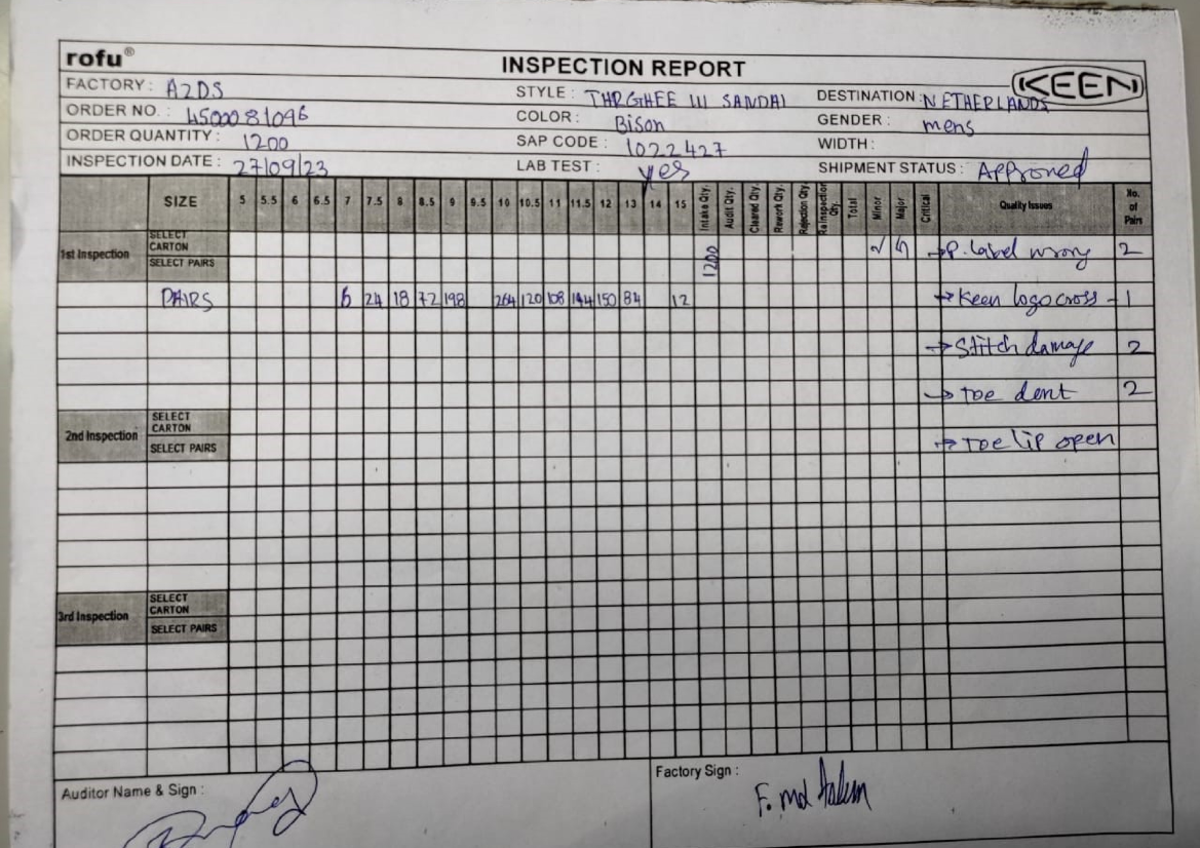 rofu®
INSPECTION REPORT
KEEN
FACTORY : AZDS
STYLE : THRGHEE III SANDAl
DESTINATION : NETHERLANDS
ORDER NO. : 4500081096
COLOR : Bison
GENDER : mens
ORDER QUANTITY : 1200
SAP CODE : 1022427
WIDTH :
INSPECTION DATE : 27/09/23
LAB TEST : yes
SHIPMENT STATUS : Approved
SIZE 5 5.5 6 6.5 7 7.5 8 8.5 9 9.5 10 10.5 11 11.5 12 13 14 15 Intake Qty. Audit Qty. Cleared Qty. Rework Qty. Rejection Qty. Reinspection Qty. Total Minor Major Critical Quality Issues No. of Pairs
1st Inspection
SELECT CARTON
SELECT PAIRS
1200
→ P. label wrong 2
PAIRS 6 24 18 72 198 264 120 108 144 150 84 12
→ Keen logo cross - 1
→ Stitch damage 2
→ Toe dent 2
2nd Inspection
SELECT CARTON
SELECT PAIRS
→ Toe lip open
3rd Inspection
SELECT CARTON
SELECT PAIRS
Auditor Name & Sign :
Factory Sign :
F. md